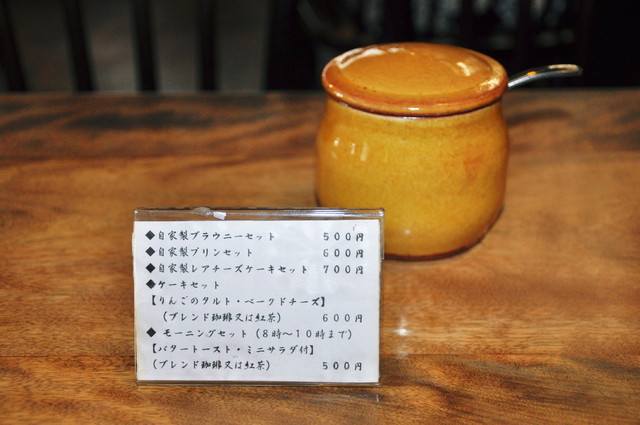 ◆自家製ブラウニーセット 500円
◆自家製プリンセット 600円
◆自家製レアチーズケーキセット 700円
◆ケーキセット
【りんごのタルト・ベークドチーズ】
(ブレンド珈琲又は紅茶) 600円
◆ モーニングセット (8時〜10時まで)
【バタートースト・ミニサラダ付】
(ブレンド珈琲又は紅茶) 500円